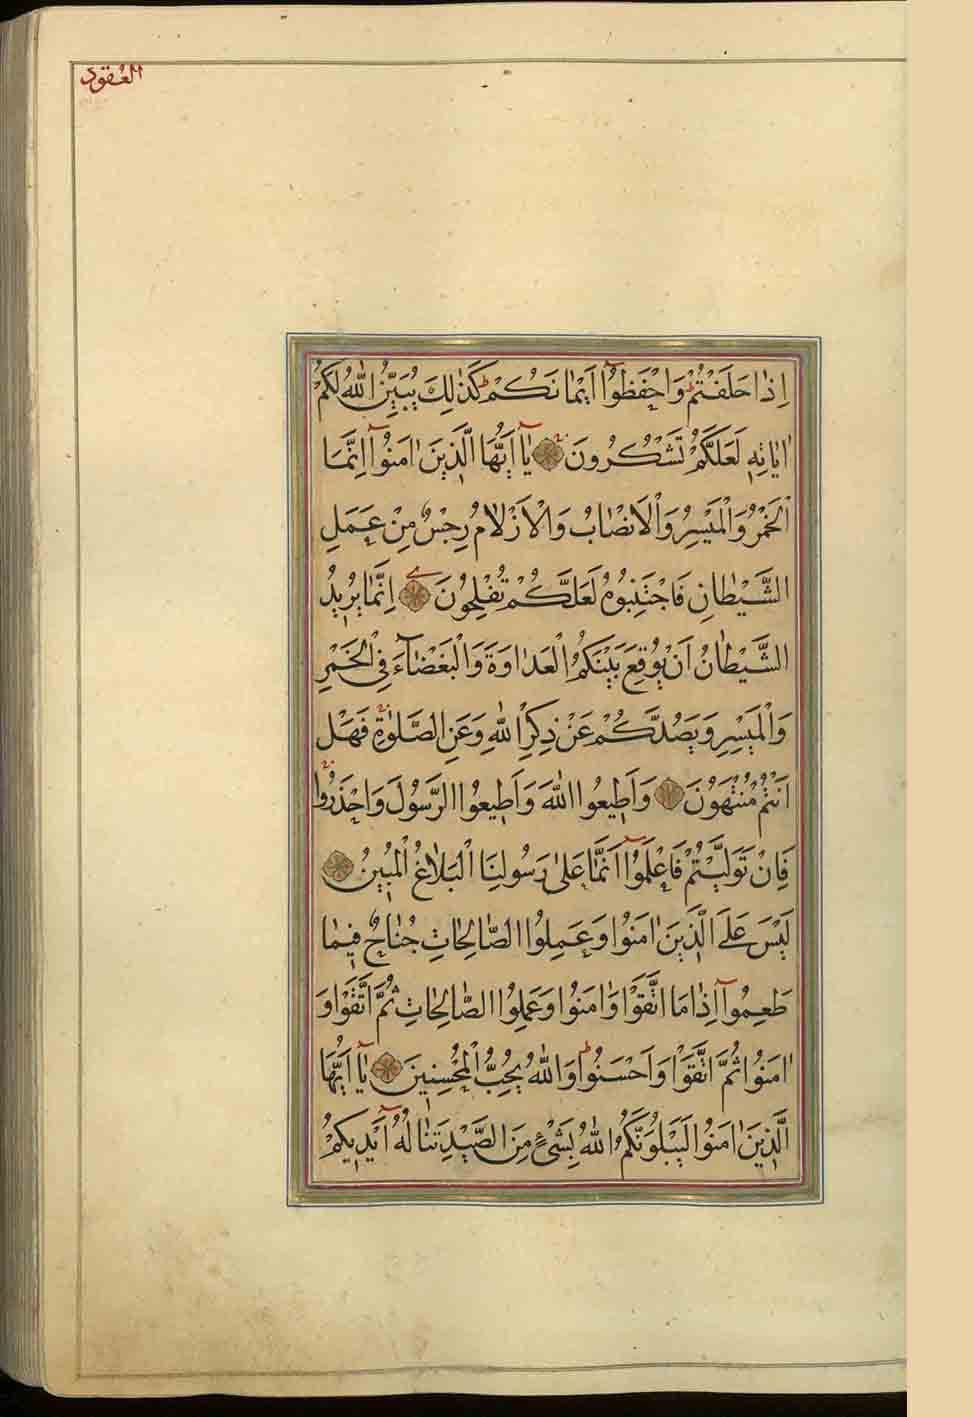 العقود
اِذٰا حَلَفْتُمْ وَاحْفَظُوٓا اَيْمٰانَكُمْ كَذٰلِكَ يُبَيِّنُ اللّٰهُ لَكُمْ
اٰيٰاتِهٖ لَعَلَّكُمْ تَشْكُرُونَ يٰٓا اَيُّهَا الَّذٖينَ اٰمَنُوٓا اِنَّمَا
الْخَمْرُ وَالْمَيْسِرُ وَالْاَنْصٰابُ وَالْاَزْلٰامُ رِجْسٌ مِنْ عَمَلِ
الشَّيْطٰانِ فَاجْتَنِبُوهُ لَعَلَّكُمْ تُفْلِحُونَ اِنَّمٰا يُرٖيدُ
الشَّيْطٰانُ اَنْ يُوقِعَ بَيْنَكُمُ الْعَدٰاوَةَ وَالْبَغْضٰٓاءَ فِي الْخَمْرِ
وَالْمَيْسِرِ وَيَصُدَّكُمْ عَنْ ذِكْرِ اللّٰهِ وَعَنِ الصَّلٰوةِ فَهَلْ
اَنْتُمْ مُنْتَهُونَ وَاَطٖيعُوا اللّٰهَ وَاَطٖيعُوا الرَّسُولَ وَاحْذَرُوا
فَاِنْ تَوَلَّيْتُمْ فَاعْلَمُوٓا اَنَّمٰا عَلٰى رَسُولِنَا الْبَلٰاغُ الْمُبٖينُ
لَيْسَ عَلَى الَّذٖينَ اٰمَنُوا وَعَمِلُوا الصّٰالِحٰاتِ جُنٰاحٌ فٖيمٰا
طَعِمُوٓا اِذٰا مَا اتَّقَوْا وَاٰمَنُوا وَعَمِلُوا الصّٰالِحٰاتِ ثُمَّ اتَّقَوْا وَ
اٰمَنُوا ثُمَّ اتَّقَوْا وَاَحْسَنُوا وَاللّٰهُ يُحِبُّ الْمُحْسِنٖينَ يٰٓا اَيُّهَا
الَّذٖينَ اٰمَنُوا لَيَبْلُوَنَّكُمُ اللّٰهُ بِشَيْءٍ مِنَ الصَّيْدِ تَنٰالُهُٓ اَيْدٖيكُمْ